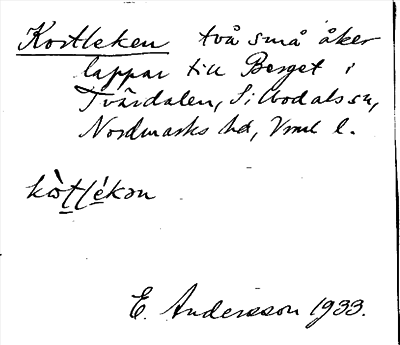 Kortleken två små åker
lappar till Berget i
Tvärdalen, Silbodals sn,
Nordmarks hd, Vrml l.
kòt̠t̠lé̠kən
E. Andersson 1933.